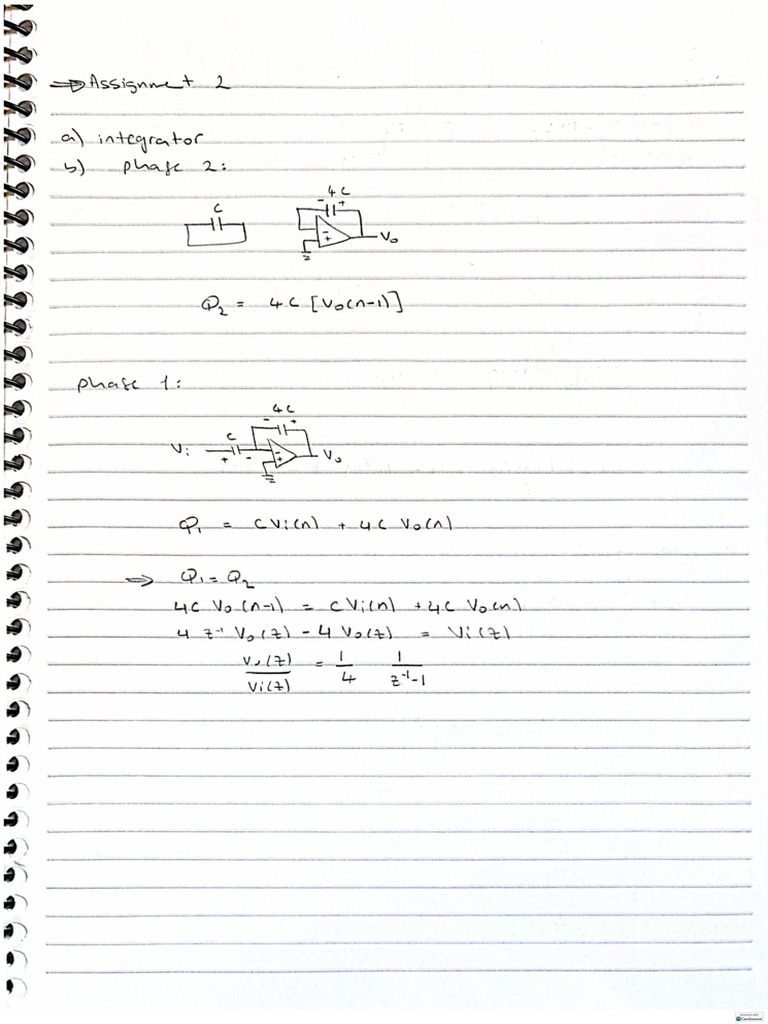 ⇒ Assignment 2
a) integrator
b) phase 2:
4C
C
- +
- +
Vo
Q₂ = 4C [Vo(n-1)]
phase 1:
4C
- +
C
Vi
+ -
- +
Vo
Q₁ = CVi(n) + 4C Vo(n)
⇒ Q₁ = Q₂
4C Vo(n-1) = CVi(n) + 4C Vo(n)
4 z⁻¹ Vo(z) - 4 Vo(z) = Vi(z)
Vo(z)/Vi(z) = 1/4 1/(z⁻¹-1)
CamScanner